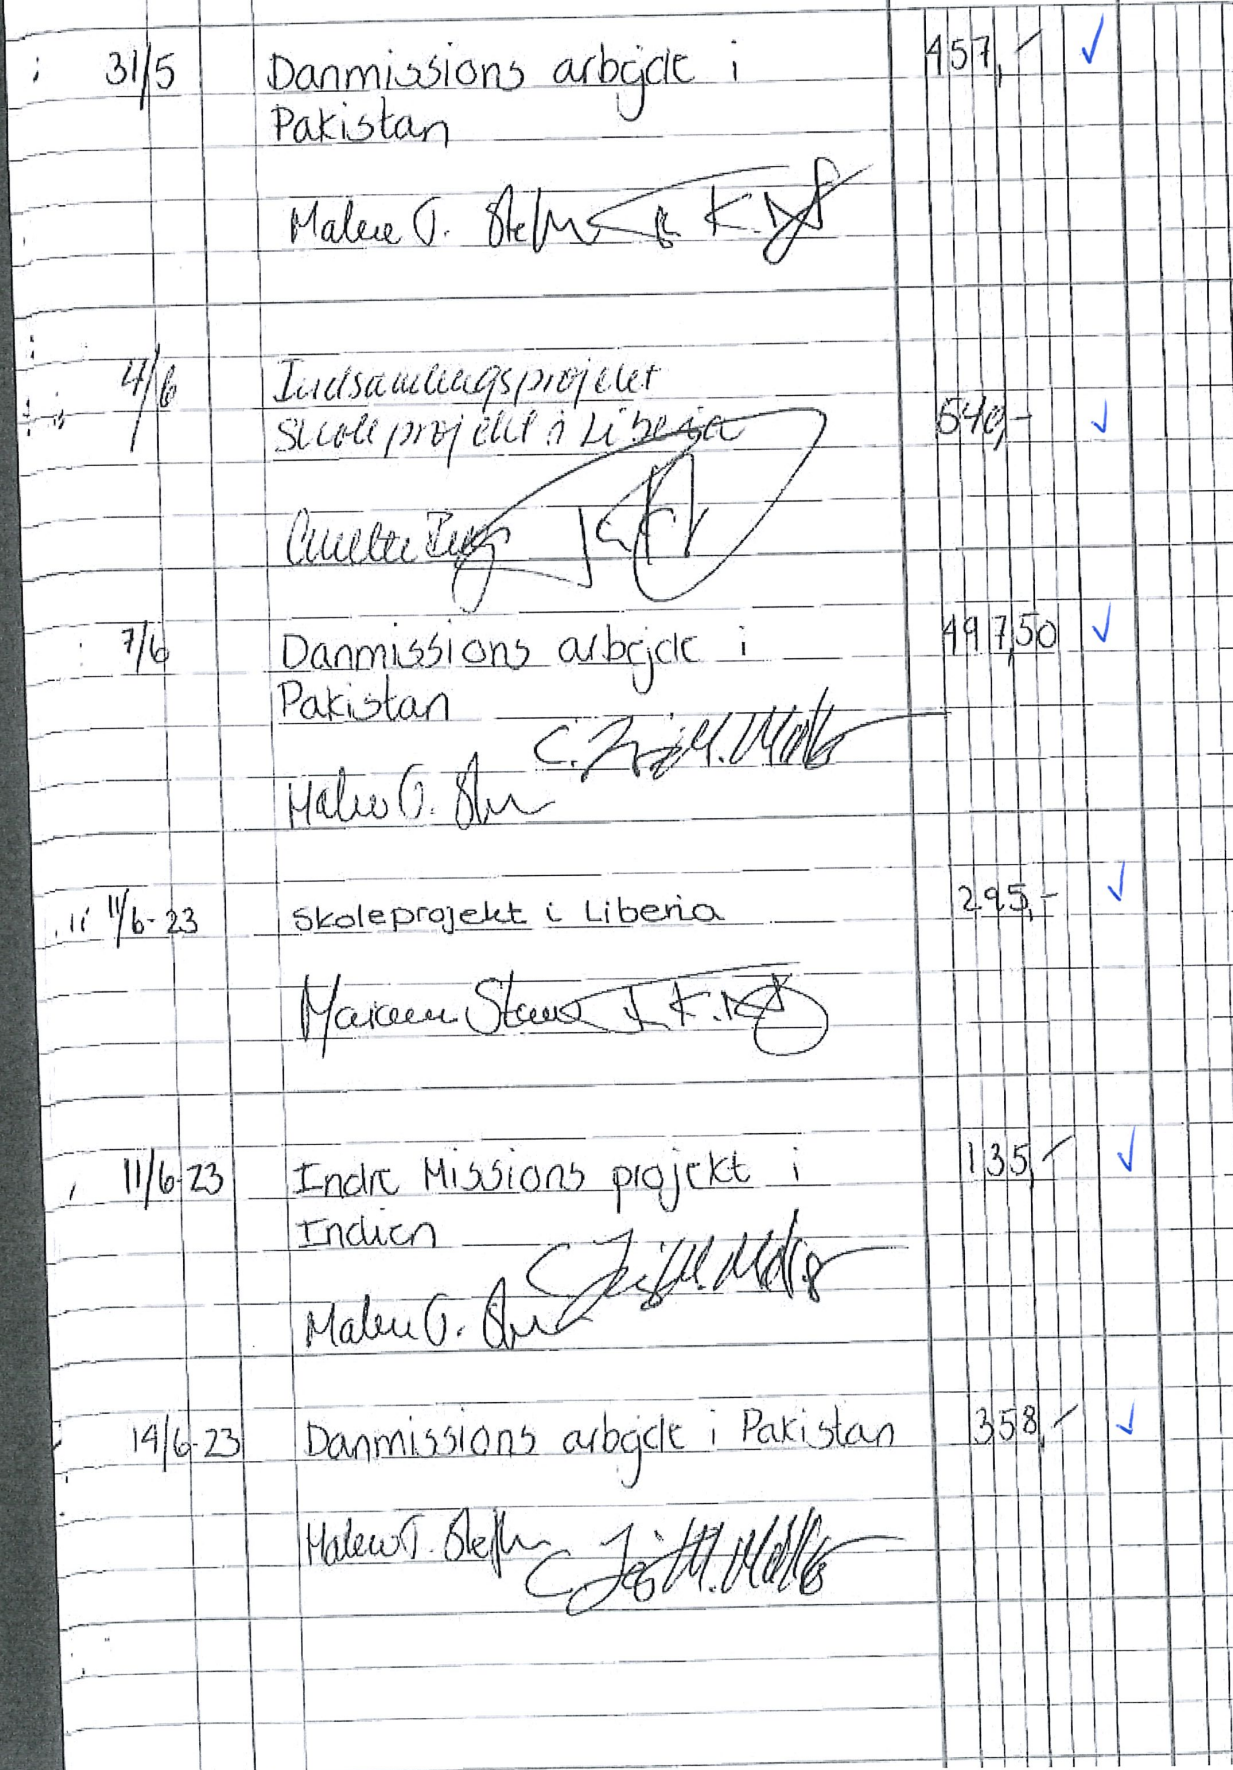 31/5 Danmissions arbejde i 457,-
Pakistan
Malene T.
4/6 Indsamlingsprojekt
Skoleprojekt i Liberia 540,-
Anette
7/6 Danmissions arbejde i 497,50
Pakistan
C. M. Møller
Malene T.
11/6-23 Skoleprojekt i Liberia 295,-
11/6-23 Indre Missions projekt i 135,-
Indien
C. M. Møller
Malene T.
14/6-23 Danmissions arbejde i Pakistan 358,-
Malene T.
C. M. Møller